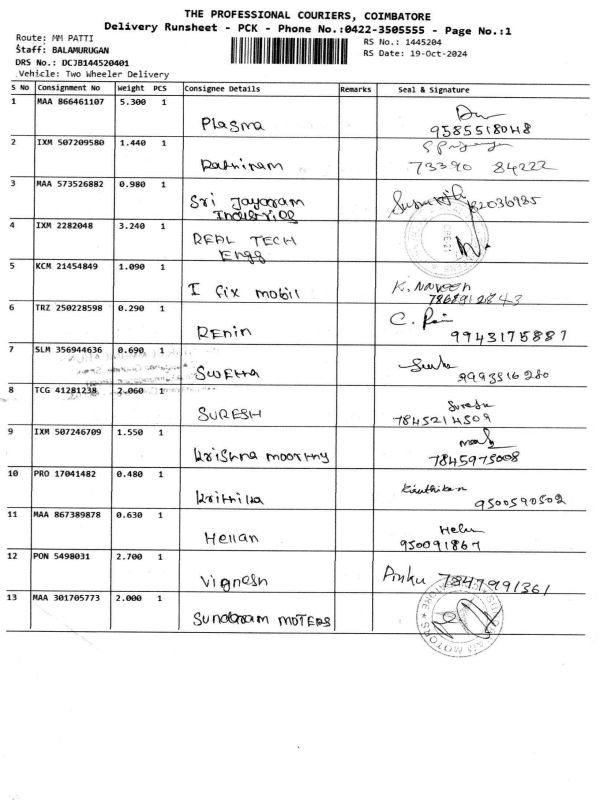 THE PROFESSIONAL COURIERS, COIMBATORE
Delivery Runsheet - PCK - Phone No.:0422-3505555 - Page No.:1
Route: MM PATTI
RS No.: 1445204
Staff: BALAMURUGAN
RS Date: 19-Oct-2024
DRS No.: DCJB144520401
Vehicle: Two Wheeler Delivery
S No Consignment No Weight PCS Consignee Details Remarks Seal & Signature
1 MAA 866461107 5.300 1
Plasma 9585518048
2 IXM 507209580 1.440 1
Rathinam 73390 84222
3 MAA 573526882 0.980 1
Sri Jayaram
Industries
4 IXM 2282048 3.240 1
REAL TECH
Engg
5 KCM 21454849 1.090 1 K. Naveen
I fix mobil 7868912843
6 TRZ 250228598 0.290 1
Renin 9943175887
7 SLM 356944636 0.690 1
Swetha 9993516280
8 TCG 41281238 2.060 1 Suresh
SURESH 7845214509
9 IXM 507246709 1.550 1
Krishna moorthy 7845975008
10 PRO 17041482 0.480 1
Krithika 9500590502
11 MAA 867389878 0.630 1
Hellan 950091867
12 PON 5498031 2.700 1 Pinku 7847991361
Vignesh
13 MAA 301705773 2.000 1
Sundaram MOTERS